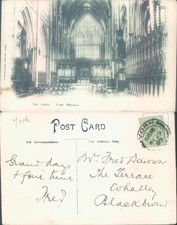 The Choir. York Minster.
York
POST CARD
For Correspondence
The Address Only
Grand day
& fine time
Fred
Mr Fred Dawson
The Terrace
Whalley
Blackburn